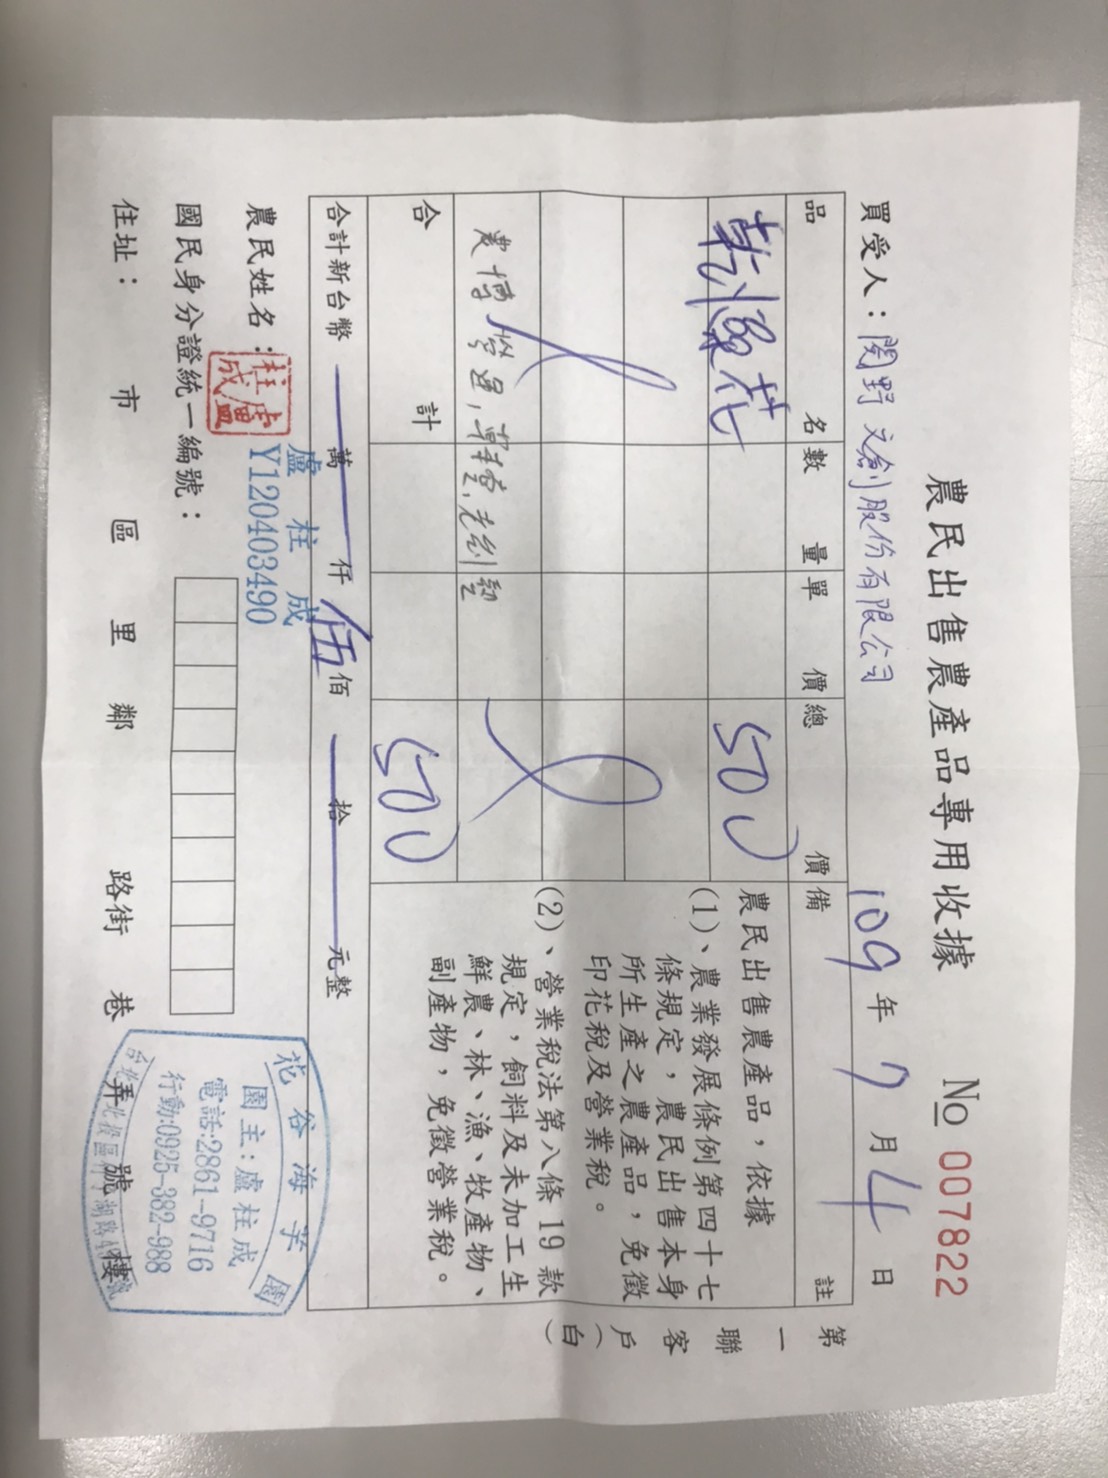 農民出售農產品專用收據 No 007822
買受人：閱野文創股份有限公司 109年7月4日
品名 數量 單價 總價 備註
乾燥花 500
農民出售農產品，依據
(1)、農業發展條例第四十七
條規定，農民出售本身
所生產之農產品，免徵
印花稅及營業稅。
(2)、營業稅法第八條 19 款
規定，飼料及未加工生
鮮農、林、漁、牧產物、
副產物，免徵營業稅。
第一聯客戶（白）
農博營運,
合計 500
合計新台幣 萬 仟 伍佰 拾 元整
盧柱成
Y120403490
農民姓名：
盧柱成
國民身分證統一編號：
住址： 市 區 里 鄰 路街 巷 弄 號 樓
花谷海芋園
園主:盧柱成
電話:2861-9716
行動:0925-382-988
台北 北投區竹子湖路 號